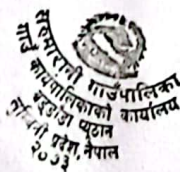 सरुमारानी गाउँपालिका
गाउँ कार्यपालिकाको कार्यालय
प्यूठान
प्रदेश, नेपाल
२०७३